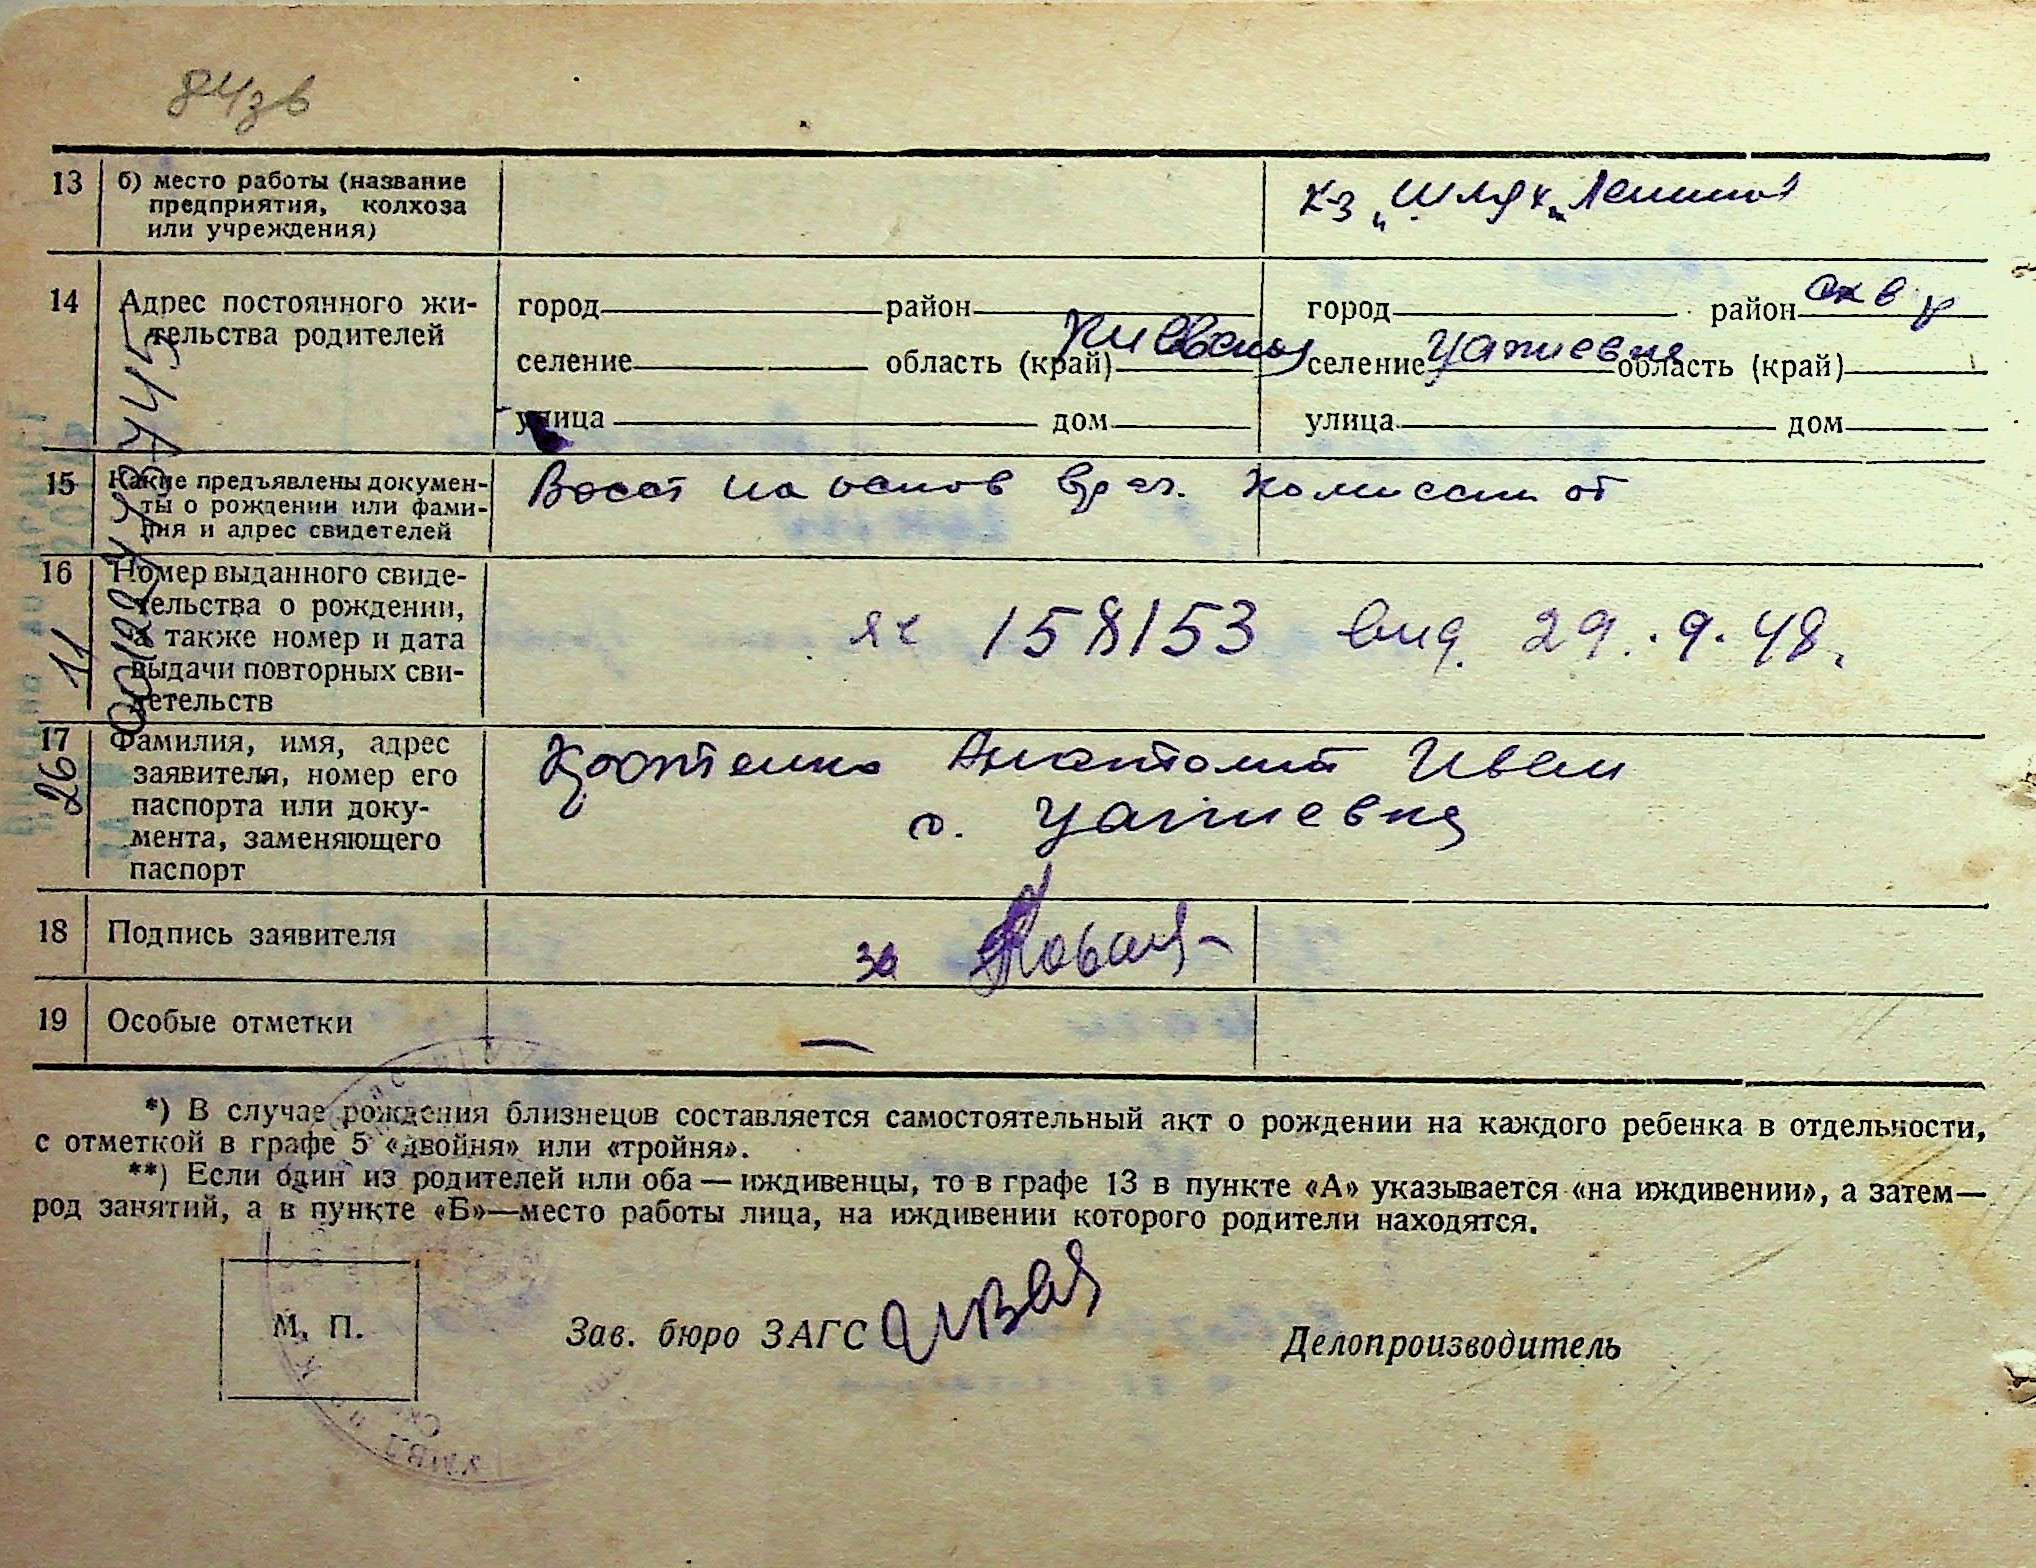 13 б) место работы (название
предприятия, колхоза
или учреждения)
кз „Шлях„ Ленина
14 Адрес постоянного жи-
тельства родителей
город район город район Скв р
селение область (край) Киевская селение область (край)
улица дом улица дом
15 Какие предъявлены докумен-
ты о рождении или фами-
лия и адрес свидетелей
Восст на основ врач. комиссии от
16 Номер выданного свиде-
тельства о рождении,
а также номер и дата
выдачи повторных сви-
детельств
158153 вид. 29.9.48.
17 Фамилия, имя, адрес
заявителя, номер его
паспорта или доку-
мента, заменяющего
паспорт
Анатолий Иван
с.
18 Подпись заявителя
за
19 Особые отметки
—
26 11
*) В случае рождения близнецов составляется самостоятельный акт о рождении на каждого ребенка в отдельности,
с отметкой в графе 5 «двойня» или «тройня».
**) Если один из родителей или оба — иждивенцы, то в графе 13 в пункте «А» указывается «на иждивении», а затем—
род занятий, а в пункте «Б»—место работы лица, на иждивении которого родители находятся.
М. П.
Зав. бюро ЗАГС
Делопроизводитель